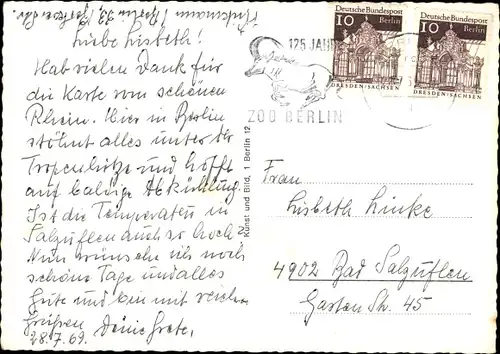 Liebe Lisbeth!
Hab vielen Dank für
die Karte vom schönen
Rhein. Hier in Berlin
stöhnt alles unter der
Tropenhitze und hofft
auf baldige Abkühlung.
Ist die Temperatur in
Salzuflen auch so hoch?
Nun wünsche ich noch
schöne Tage und alles
Gute und bin mit reichen
Grüßen Deine Grete.
28.7.69.
Kunst und Bild, 1 Berlin 12
125 JAHRE
ZOO BERLIN
Deutsche Bundespost
10 Berlin
DRESDEN/SACHSEN
Deutsche Bundespost
10 Berlin
DRESDEN/SACHSEN
Frau
Lisbeth Linke
4902 Bad Salzuflen
Garten Str. 45